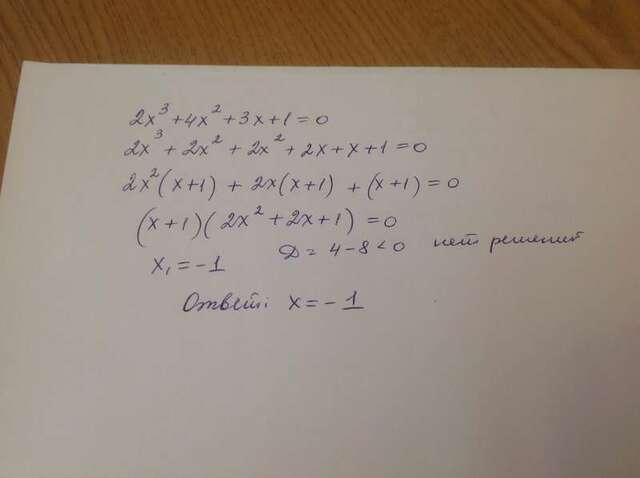 2x³ + 4x² + 3x + 1 = 0
2x³ + 2x² + 2x² + 2x + x + 1 = 0
2x²(x+1) + 2x(x+1) + (x+1) = 0
(x+1)(2x² + 2x + 1) = 0
x₁ = -1 D = 4 - 8 < 0 нет решений
Ответ: x = -1